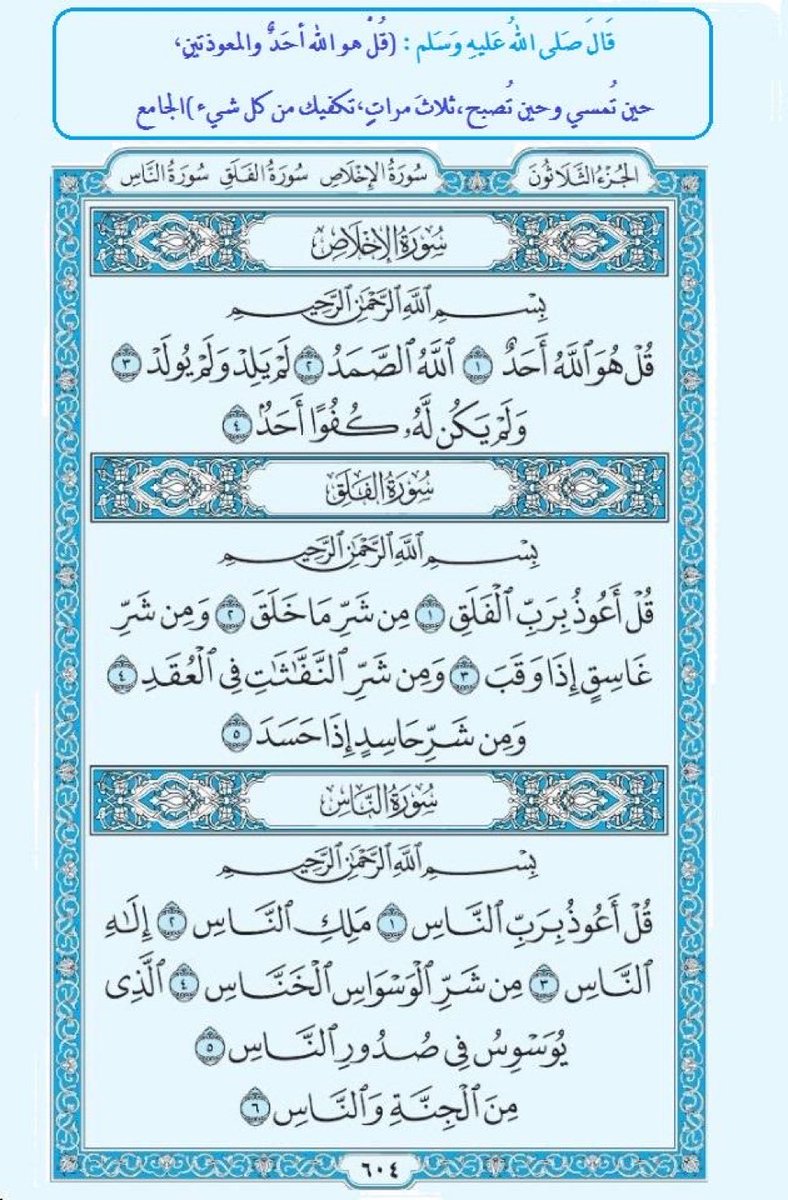 قَالَ صَلى اللهُ عَليهِ وَسَلم : (قُلْ هو الله أحَدٌ والمعوذتينِ،
حين تُمسي وحين تُصبح،ثلاثَ مراتٍ،تكفيك من كل شيء)الجامع
الجُزْءُ الثَّلَاثُونَ سُورَةُ الإِخْلَاصِ سُورَةُ الفَلَقِ سُورَةُ النَّاسِ
سُورَةُ الإِخْلَاصِ
بِسْمِ ٱللَّهِ ٱلرَّحْمَٰنِ ٱلرَّحِيمِ
قُلْ هُوَ ٱللَّهُ أَحَدٌ ١ ٱللَّهُ ٱلصَّمَدُ ٢ لَمْ يَلِدْ وَلَمْ يُولَدْ ٣
وَلَمْ يَكُن لَّهُۥ كُفُوًا أَحَدٌۢ ٤
سُورَةُ الفَلَقِ
بِسْمِ ٱللَّهِ ٱلرَّحْمَٰنِ ٱلرَّحِيمِ
قُلْ أَعُوذُ بِرَبِّ ٱلْفَلَقِ ١ مِن شَرِّ مَا خَلَقَ ٢ وَمِن شَرِّ
غَاسِقٍ إِذَا وَقَبَ ٣ وَمِن شَرِّ ٱلنَّفَّٰثَٰتِ فِى ٱلْعُقَدِ ٤
وَمِن شَرِّ حَاسِدٍ إِذَا حَسَدَ ٥
سُورَةُ النَّاسِ
بِسْمِ ٱللَّهِ ٱلرَّحْمَٰنِ ٱلرَّحِيمِ
قُلْ أَعُوذُ بِرَبِّ ٱلنَّاسِ ١ مَلِكِ ٱلنَّاسِ ٢ إِلَٰهِ
ٱلنَّاسِ ٣ مِن شَرِّ ٱلْوَسْوَاسِ ٱلْخَنَّاسِ ٤ ٱلَّذِى
يُوَسْوِسُ فِى صُدُورِ ٱلنَّاسِ ٥
مِنَ ٱلْجِنَّةِ وَٱلنَّاسِ ٦
٦٠٤